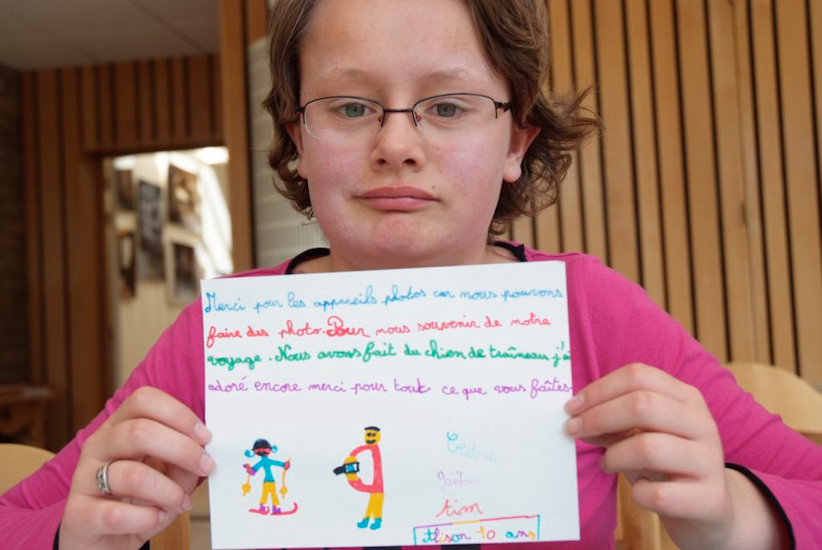 Merci pour les appareils photos car nous pouvons
faire des photo. Pour nous souvenir de notre
voyage. Nous avons fait du chien de traîneau j'ai
adoré encore merci pour tout ce que vous faîtes
tim
10 ans